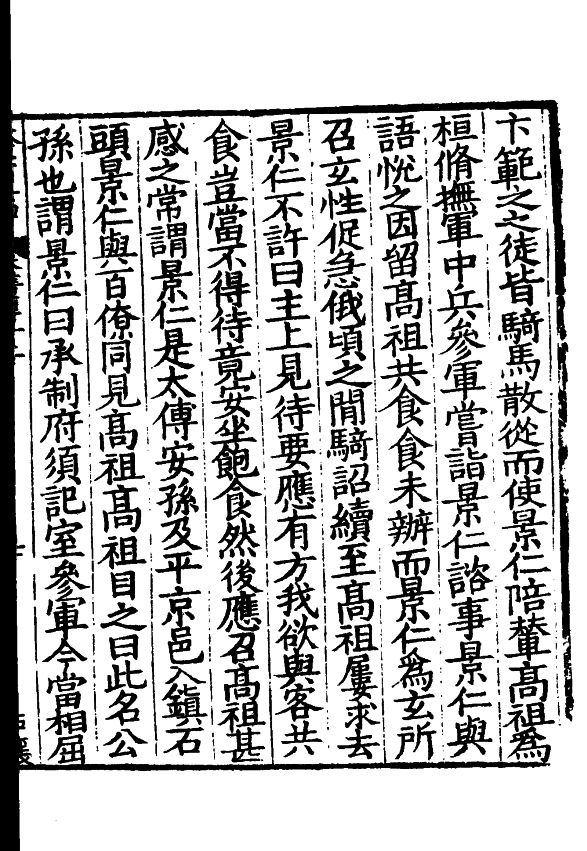 卞範之之徒皆騎馬散從而使景仁陪輦高祖爲
桓脩撫軍中兵參軍嘗詣景仁諮事景仁與
語悅之因留高祖共食食未辦而景仁爲玄所
召玄性促急俄頃之間騎詔續至高祖屢求去
景仁不許曰主上見待要應有方我欲與客共
食豈當不得待竟安坐飽食然後應召高祖甚
感之常謂景仁是太傅安孫及平京邑入鎮石
頭景仁與百僚同見高祖高祖目之曰此名公
孫也謂景仁曰承制府須記室參軍今當相屈